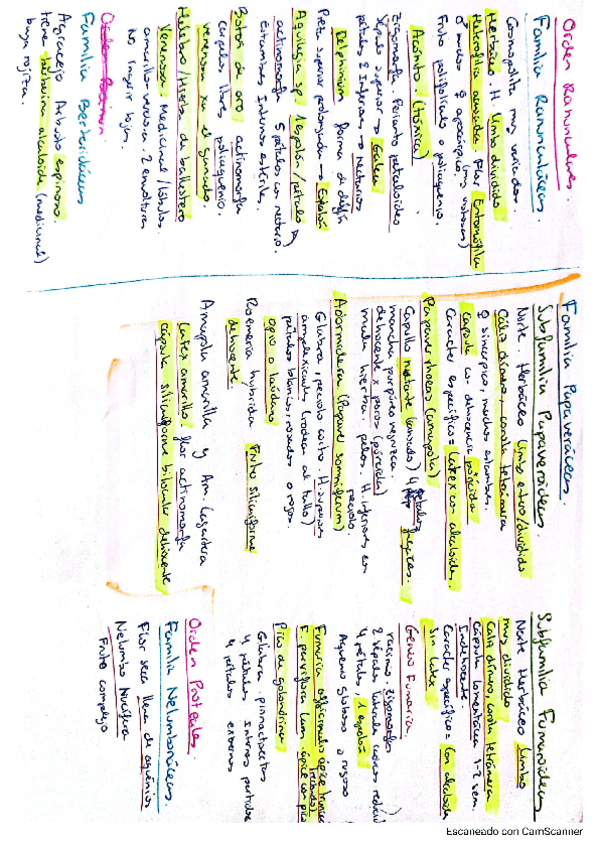 Orden Ranunculares.
Familia Ranunculáceas.
Cosmopolita, muy variados.
Herbáceo H. limbo dividido
Heterofilia acusada. Flor Entomófila
♂ muchos ♀ apocárpico. (muy vistosas)
Fruto polifolículo o poliaquenio.
Aconito. (tóxica)
Zigomorfa. Perianto petaloideo
sépalo superior → Galea
pétalos 2 inferiores → Nectarios
Delphinium forma de delfín
Pieza superior prolongada → Espolón
Aquilegia sp 1 espolón/pétalo
actinomorfa 5 pétalos con nectario.
Estambres internos estériles.
Botón de oro actinomorfa
carpelos libres poliaquenio.
venenosa xa el ganado.
Heleboro/Hierba de ballestero
Venenosa. Medicinal/lóbulos.
amarillo verdosa. 2 envolturas
No ingerir hojas.
Familia Berberidáceas
Agracejo Arbusto espinoso.
tiene berberina alcaloide (medicinal)
baya rojiza.
Familia Papaveráceas.
Subfamilia Papaveroideas.
Norte. Herbáceo limbo entero/dividido
Cáliz dímero, corola tetrámera
♀ sincárpico, muchos estambres.
cápsula con dehiscencia poricida
Carácter específico = Látex con alcaloides.
Papaver rhoeas (amapola)
Capullo nutante (curvado) 4 pétalos fugaces.
mancha purpúreo negruzca.
dehiscente x poros (poricida)
mucha hierba. pelos. H inferiores con
peciolo.
Adormidera (Papaver somniferum)
Glabra, peciolo corto. H. superiores
amplexicaules (rodean al tallo)
pétalos blancos, rosados o rojos.
opio o láudano
Roemeria hybrida Fruto siliquiforme
dehiscente.
Amapola amarilla y Am. lagartera
Látex amarillo. flor actinomorfa
cápsula siliquiforme bilocular dehiscente
Subfamilia Fumarioideas
Norte Herbáceo limbo
muy dividido
Cáliz dímero, corola tetrámera
cápsula lomentácea 1-2 sem.
Indehiscente
Carácter específico = Con alcaloides
sin látex
Género Fumaria
racimo. Zigomorfas
4 pétalos, 1 espolón
Aqueno globoso o rugoso
Fumaria officinalis ápice truncado
F. parviflora Lam. ápice con pico
Pico de golondrina
Glabra pinnatisectas
4 pétalos externos
Orden Proteales.
Familia Nelumbonáceas.
Flor seca llena de aquenios
Nelumbo Nucifera
Fruto complejo
Escaneado con CamScanner